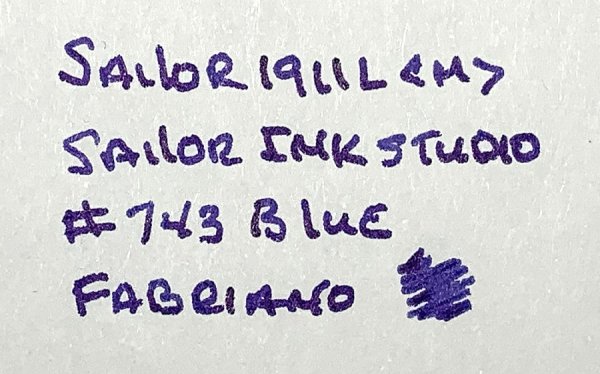 SAILOR 1911L <M>
SAILOR INK STUDIO
#743 BLUE
FABRIANO